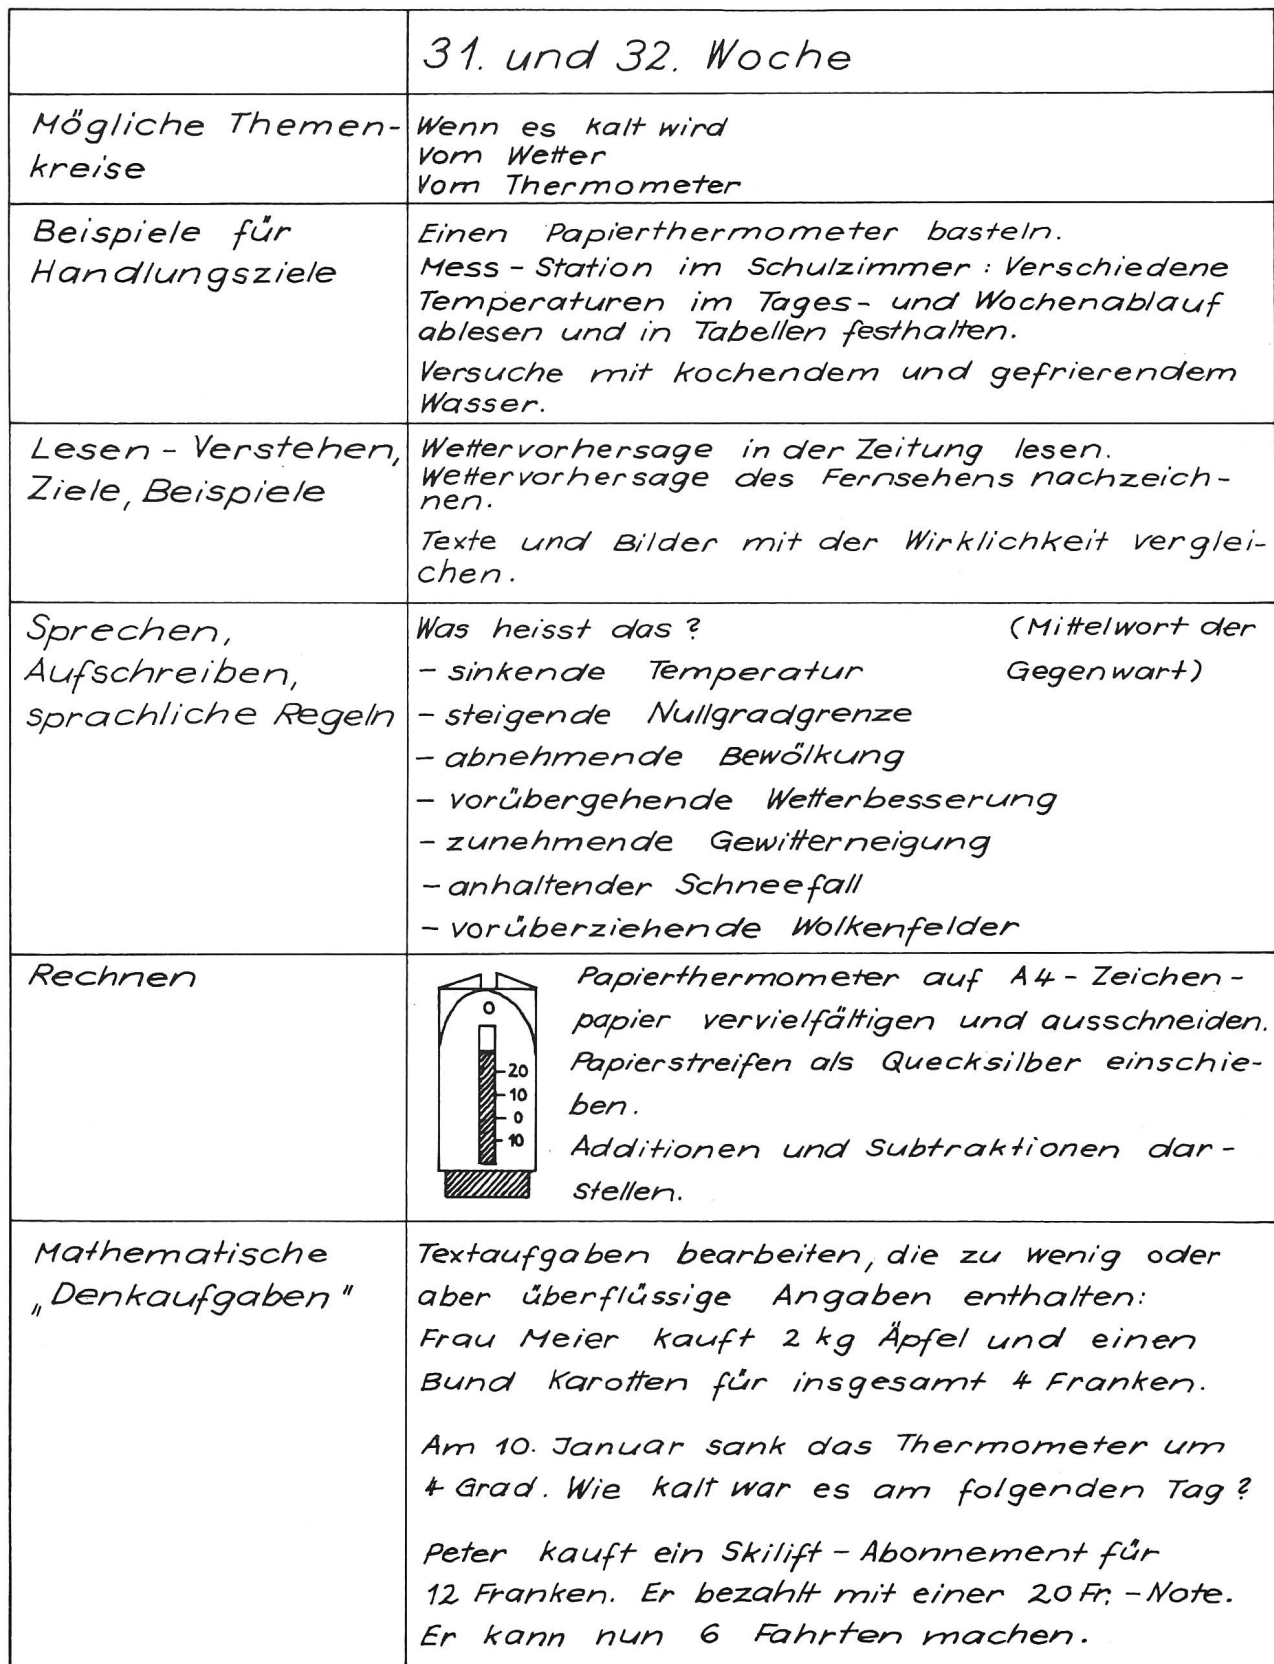 31. und 32. Woche
Mögliche Themen-
kreise
Wenn es kalt wird
Vom Wetter
Vom Thermometer
Beispiele für
Handlungsziele
Einen Papierthermometer basteln.
Mess-Station im Schulzimmer: Verschiedene
Temperaturen im Tages- und Wochenablauf
ablesen und in Tabellen festhalten.
Versuche mit kochendem und gefrierendem
Wasser.
Lesen - Verstehen,
Ziele, Beispiele
Wettervorhersage in der Zeitung lesen.
Wettervorhersage des Fernsehens nachzeich-
nen.
Texte und Bilder mit der Wirklichkeit verglei-
chen.
Sprechen,
Aufschreiben,
sprachliche Regeln
Was heisst das? (Mittelwort der
- sinkende Temperatur Gegenwart)
- steigende Nullgradgrenze
- abnehmende Bewölkung
- vorübergehende Wetterbesserung
- zunehmende Gewitterneigung
- anhaltender Schneefall
- vorüberziehende Wolkenfelder
Rechnen
0
20
10
0
10
Papierthermometer auf A4-Zeichen-
papier vervielfältigen und ausschneiden.
Papierstreifen als Quecksilber einschie-
ben.
Additionen und Subtraktionen dar-
stellen.
Mathematische
„Denkaufgaben"
Textaufgaben bearbeiten, die zu wenig oder
aber überflüssige Angaben enthalten:
Frau Meier kauft 2 kg Äpfel und einen
Bund Karotten für insgesamt 4 Franken.
Am 10. Januar sank das Thermometer um
4 Grad. Wie kalt war es am folgenden Tag?
Peter kauft ein Skilift-Abonnement für
12 Franken. Er bezahlt mit einer 20 Fr.-Note.
Er kann nun 6 Fahrten machen.